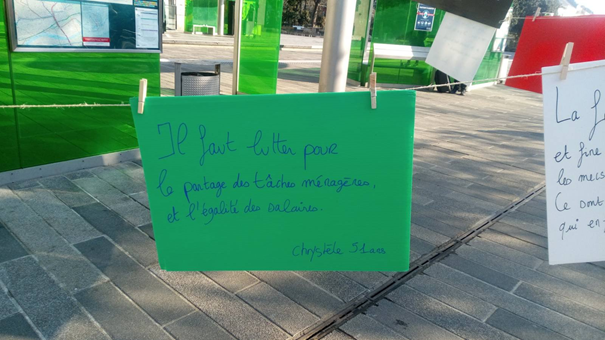 Il faut lutter pour
le partage des tâches ménagères,
et l'égalité des salaires.
Chrystèle 51 ans
La
et fine
les mecs
Ce sont
qui en